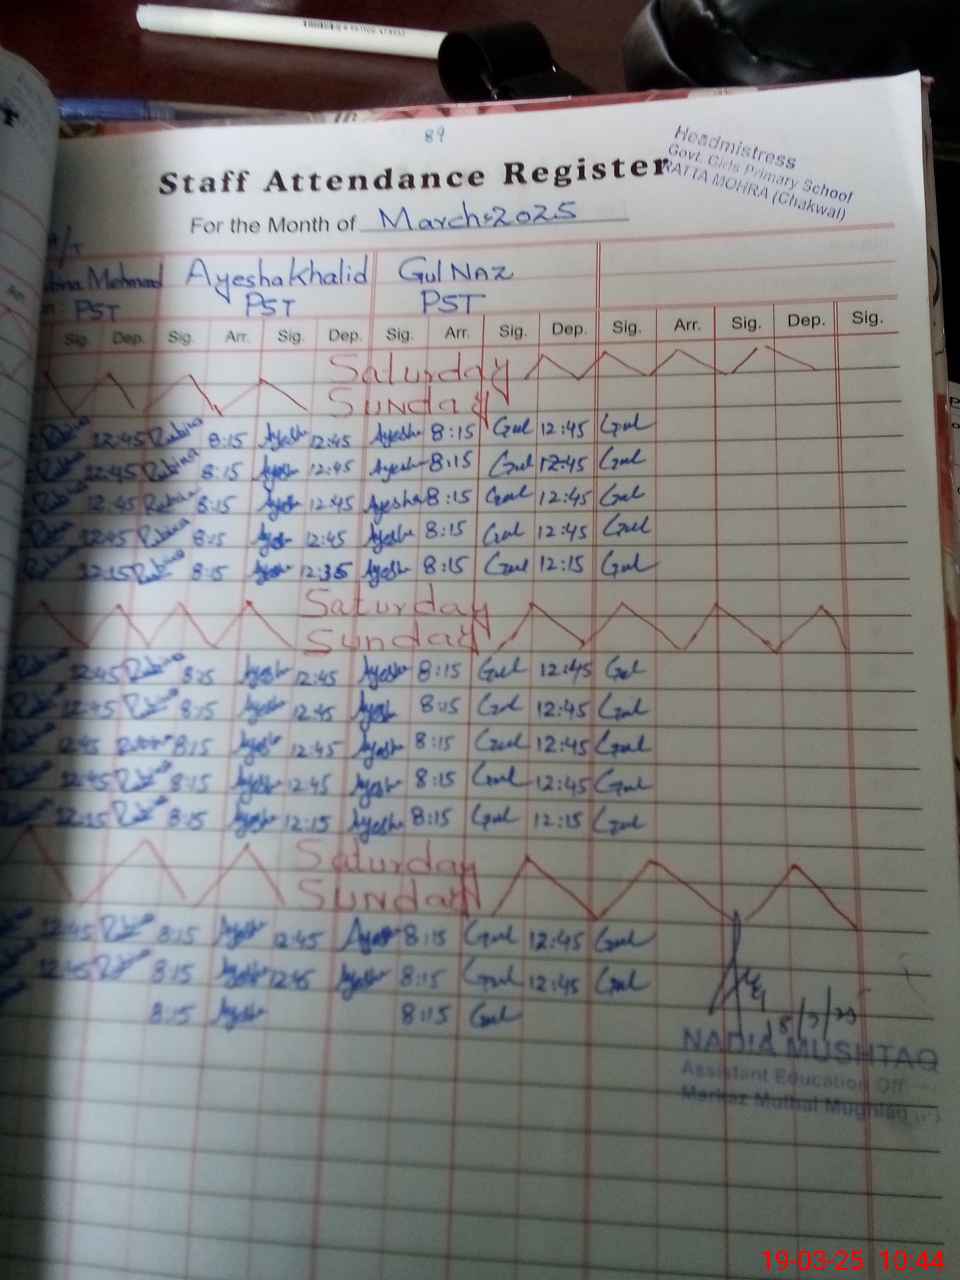 89
Staff Attendance Register
Headmistress
Govt. Girls Primary School
RATTA MOHRA (Chakwal)
For the Month of March-2025
Ayesha Khalid Gul NAZ
PST PST PST
Sig. Dep. Sig. Arr. Sig. Dep. Sig. Arr. Sig. Dep. Sig. Arr. Sig. Dep. Sig.
Saturday
Sunday
Rubina 12:45 Rubina 8:15 Ayesha 12:45 Ayesha 8:15 Gul 12:45 Gul
Rubina 12:45 Rubina 8:15 Ayesha 12:45 Ayesha 8:15 Gul 12:45 Gul
Rubina 12:45 Rubina 8:15 Ayesha 12:45 Ayesha 8:15 Gul 12:45 Gul
12:45 Rubina 8:15 Ayesha 12:45 Ayesha 8:15 Gul 12:45 Gul
Rubina 12:15 8:15 Ayesha 12:35 Ayesha 8:15 Gul 12:15 Gul
Saturday
Sunday
Rubina 12:45 Rubina 8:15 Ayesha 12:45 Ayesha 8:15 Gul 12:45 Gul
12:45 Rubina 8:15 Ayesha 12:45 Ayesha 8:15 Gul 12:45 Gul
12:45 Rubina 8:15 Ayesha 12:45 Ayesha 8:15 Gul 12:45 Gul
12:45 Rubina 8:15 Ayesha 12:45 Ayesha 8:15 Gul 12:45 Gul
12:15 8:15 Ayesha 12:15 Ayesha 8:15 Gul 12:15 Gul
Saturday
Sunday
12:45 Rubina 8:15 Ayesha 12:45 Ayesha 8:15 Gul 12:45 Gul
12:45 Rubina 8:15 Ayesha 12:45 Ayesha 8:15 Gul 12:45 Gul
8:15 Ayesha 8:15 Gul
NADIA MUSHTAQ
Assistant Education Off
Markaz Muthal Mughlan
19-03-25 10:44